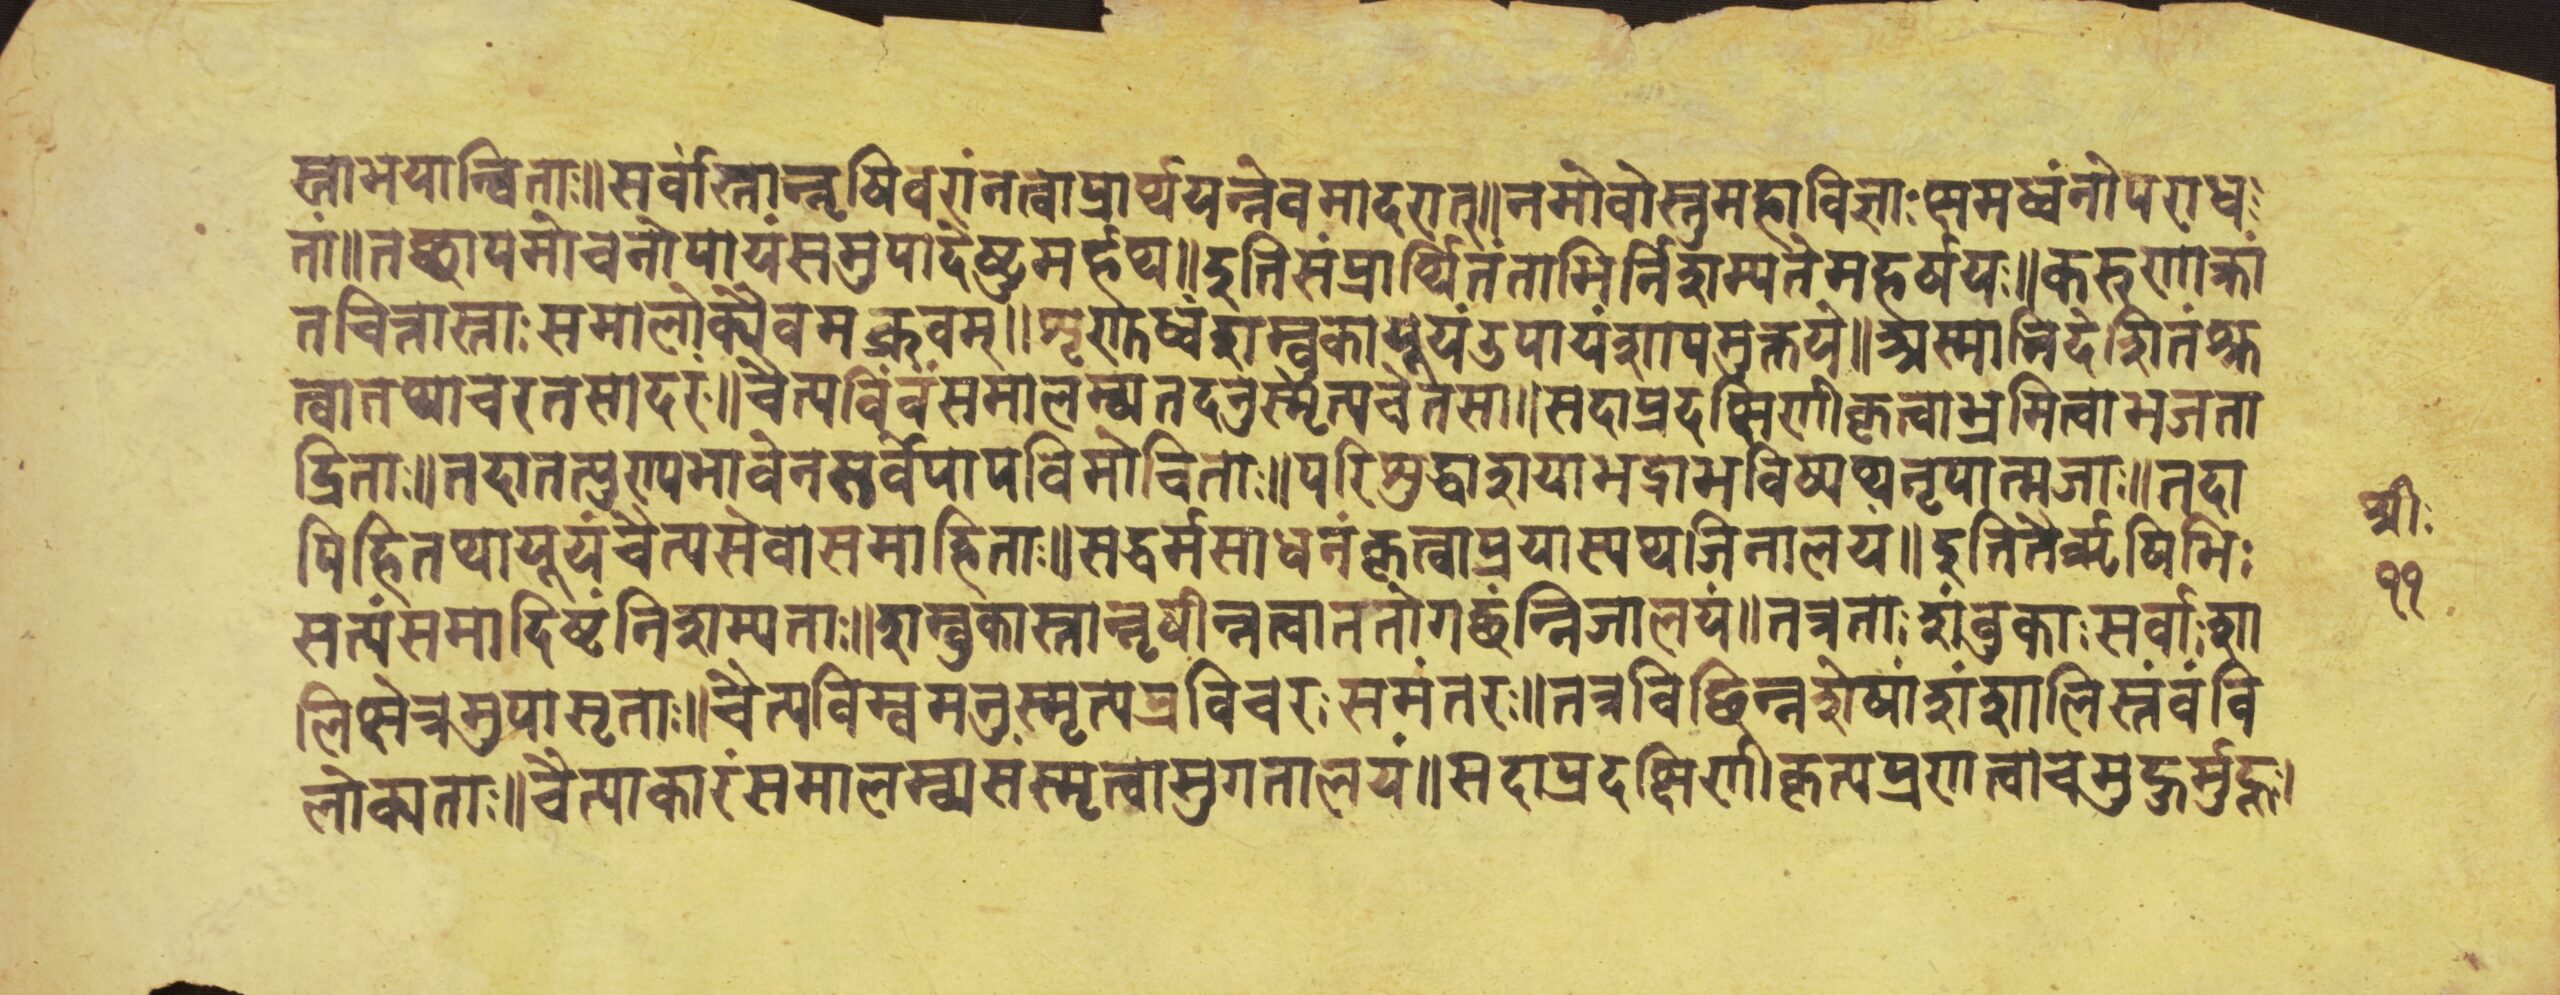 स्ताभयान्विताः॥सर्वास्तान्नृषिवरांनत्वाप्रार्थ्ययन्नेवमादरात्॥नमोवोस्तुमहाविज्ञाःक्षमध्वंनोपराध
तां॥तच्छापमोचनोपायंसमुपादेष्टुमर्हथ॥इतिसंप्रार्थ्थितंताभिर्निशम्यतेमहर्षयः॥करुणाक्रां
तचित्तास्ताःसमालोक्यैवमब्रुवम्॥शृणुतध्वंशम्बुकायूयंउपायंशापमुक्तये॥अस्मान्निदेशितंश्रु
त्वातथाचरतसादरं॥चैत्यविंवंसमालम्ब्यतदनुस्मृत्यचेतसा॥सदाप्रदक्षिणीकृत्वाभ्रमित्वाभजता
द्रिताः॥तदातत्पुण्यभावेनसर्वेपापविमोचिताः॥परिशुद्धाशयाभद्राभविष्यथनृपात्मजाः॥तदा
पिहितथायूयंचैत्यसेवासमाहिताः॥सद्धर्मसाधनंकृत्वाप्रयास्यथजिनालयं॥इतितैर्ऋषिभिः
सत्यंसमादिष्टंनिशम्यताः॥शम्बुकास्तान्नृषीन्नत्वाततोगछंन्निजालयं॥तत्रताःशंवुकाःसर्वाःशा
लिक्षेत्रमुपासृताः॥चैत्यविम्वमनुस्मृत्यप्रविचरःसमंतरः॥तत्रविछिन्नशेषांशंशालिस्तंवंवि
लोक्यताः॥चैत्याकारंसमालम्ब्यसंस्मृत्वासुगतालयं॥सदाप्रदक्षिणीकृत्यप्रणत्वाचमुहुर्मुहुः।
११